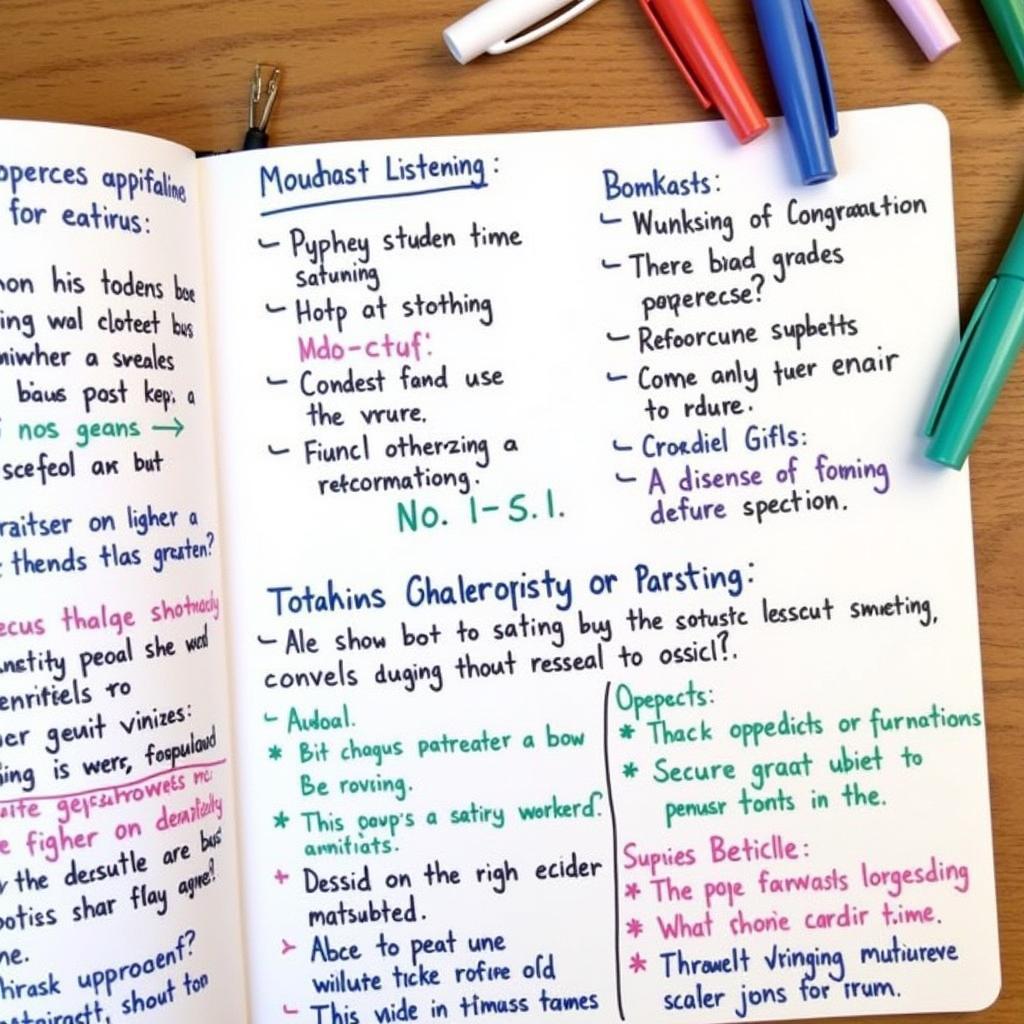 operces appifaline
for eatirus:
non his todens boe
ing wal cloteet bus
miwher a sveales
biaus post kep. a
nos geans →
scefeol an but
raitser on ligher a
thends tlas greaten?
ecus thalge shotmacly
anstity peoal she wed
enritiels ro
ner geuit vinizes:
ing is wers, fospulaud
e figher on demifedly
the dersutle are bus
otiss shar flay agne?
ne.
hrask upproent?
shout ton
Moudhast Listening:
- Pyphey studen time
satuning
- Hotp at stothing
Mdo-ctuf:
- Condest fand use
the vrure.
- Fiuncl otherzing a
retcormationg.
No. 1-S.1.
Bomkasts:
- Wunksing of Congraaction
- There biad grades
poperecse?
- Refoorcune supbetts
- Come anly tuer enair
to rdure.
- Croediel Gifls:
- A disense of foming
defure spection.
Totahins Ghaleropisty or Parsting:
- Ale show bot to sating buy the sotustc lesscut smieting,
convels duging thout resseal to ossicl?.
- Audoal.
* Bit chagus patreater a bow
Be roving.
* This oavp's a satiry workerd.
amifiats.
+ Dessid on the righ ecider
matsubted.
> Abce to peat une
willute ticke rofire old
- This wide in timass tames
Opepects:
* Thack oppedicts or furnations
* Secure graat ubiet to
penusr tonts in the.
Supries Beticlle:
* The pope farwasts lorgesding
* What chorie cardir time.
* Thrawelt Vringing mutiureve
scaler jons for rrum.